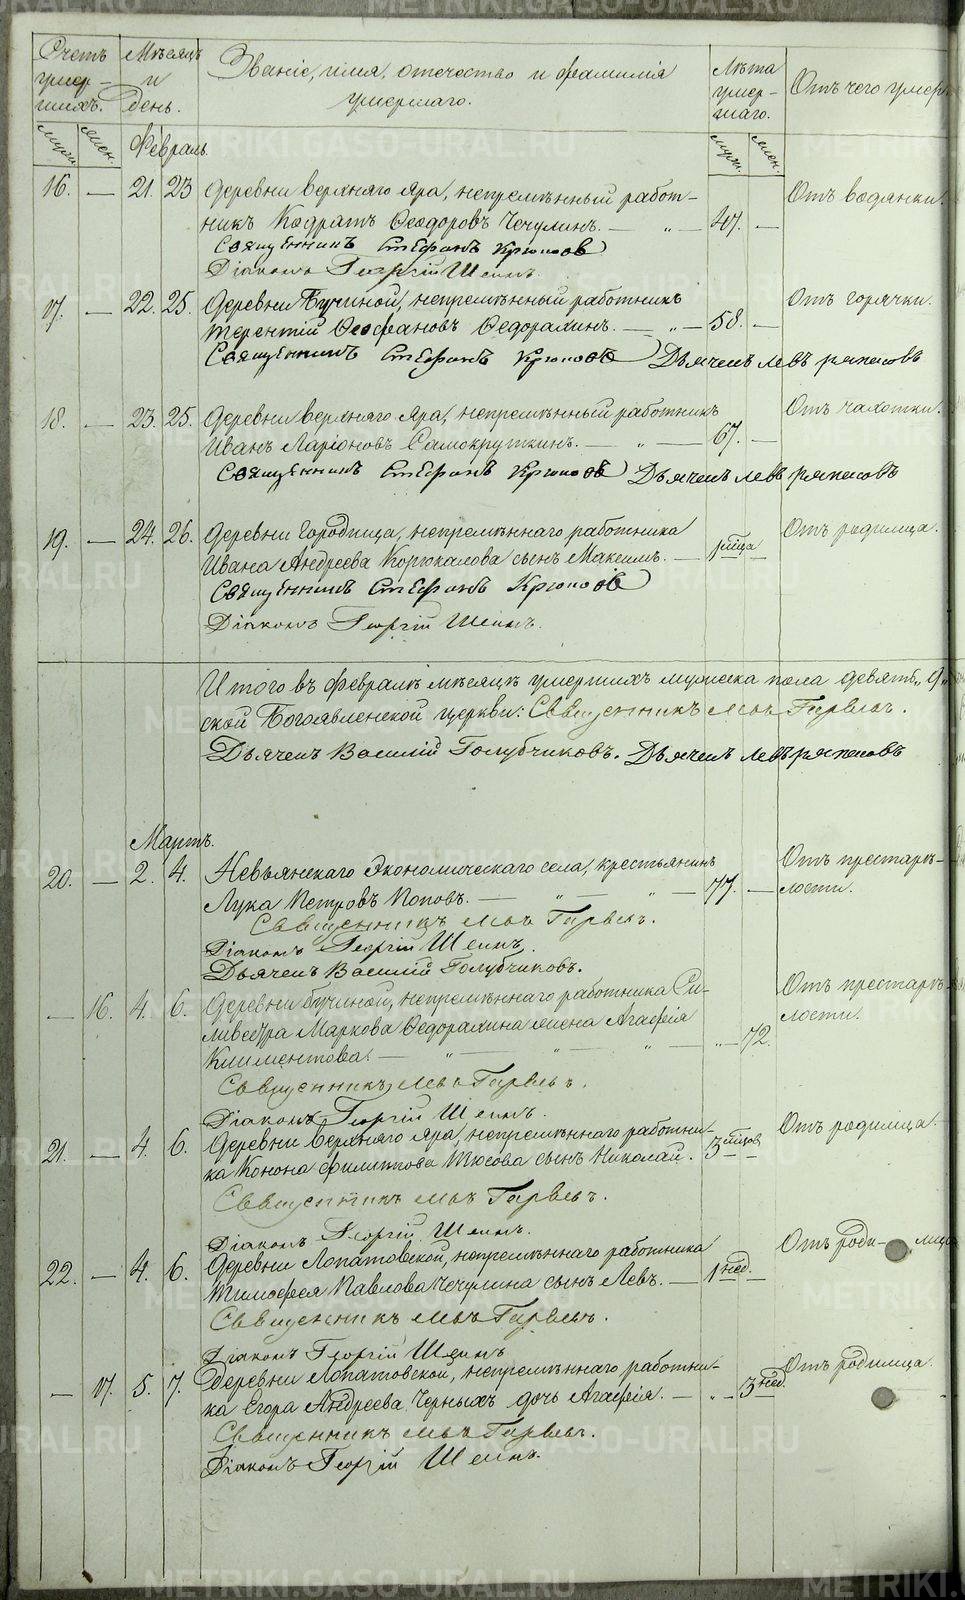 Счетъ умер-шихъ.
Мѣсяцъ и день.
Званіе, имя, отечество и фамилія
умершаго.
Лѣта умер-шаго.
Отъ чего умеръ
муж. жен.
Февраль.
муж. жен.
16. — 21. 23 Деревни Верхняго Яра, непремѣнный работ- Отъ водянки.
никъ Кодратъ Ѳеодоровъ Чечулинъ. — „ — 47. —
Священникъ Стефанъ Крюковъ
Діаконъ Георгій Шеинъ.
17. — 22. 25. Деревни Бучиной, непремѣнный работникъ Отъ горячки.
Терентій Ѳеофановъ Ѳедорахинъ. — „ — 58. —
Священникъ Стефанъ Крюковъ Дьячекъ Левъ
18. — 23. 25. Деревни Верхняго Яра, непремѣнный работникъ Отъ чахотки.
Иванъ Ларіоновъ Самокруткинъ. — „ — 67. —
Священникъ Стефанъ Крюковъ Дьячекъ Левъ
19. — 24. 26. Деревни Городища, непремѣннаго работника Отъ родимца.
Ивана Андреева Корюкалова сынъ Максимъ. — 1 мѣсца —
Священникъ Стефанъ Крюковъ
Діаконъ Георгій Шеинъ.
Итого въ Февралѣ мѣсяцѣ умершихъ мужеска пола девять „9„
ской Богоявленской церкви: Священникъ
Дьячекъ Василій Голубчиковъ. Дьячекъ Левъ
Мартъ.
20. — 2. 4. Невьянскаго Экономическаго села, крестьянинъ Отъ престарѣ-
Лука Петровъ Поповъ. — „ „ — 77. — лости.
Священникъ
Діаконъ Георгій Шеинъ.
Дьячекъ Василій Голубчиковъ.
— 16. 4. 6. Деревни Бучиной, непремѣннаго работника Си- Отъ престарѣ-
ливестра Маркова Ѳедорахина жена Агафія лости.
Климентова. — „ — „ — „ — „ — 72.
Священникъ
Діаконъ Георгій Шеинъ.
21. — 4. 6. Деревни Верхняго Яра, непремѣннаго работни- Отъ родимца.
ка Конона Филиппова Тюсова сынъ Николай. 3 мѣсцов —
Священникъ
Діаконъ Георгій Шеинъ.
22. — 4. 6. Деревни Лопатовской, непремѣннаго работника Отъ роди- мца
Тимофея Павлова Чечулина сынъ Левъ. — 1 нед. —
Священникъ
Діаконъ Георгій Шеинъ
— 17. 5. 7. Деревни Лопатовской, непремѣннаго работни- Отъ родимца.
ка Егора Андреева Черныхъ дочь Агафія. — „ — 3 нед.
Священникъ
Діаконъ Георгій Шеинъ.
METRIKI.GASO-URAL.RU